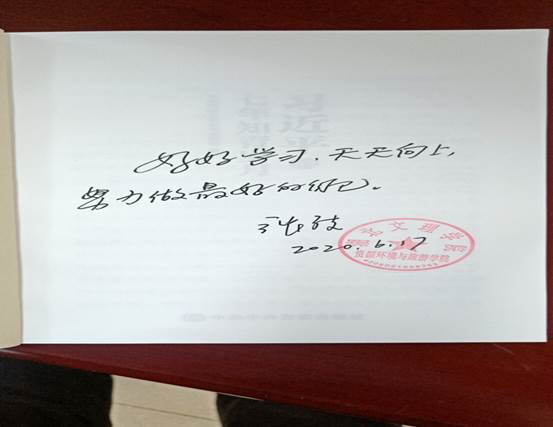 好好学习.天天向上,
努力做最好的自己。
2020.6.17
文理学
资源环境与旅游学院